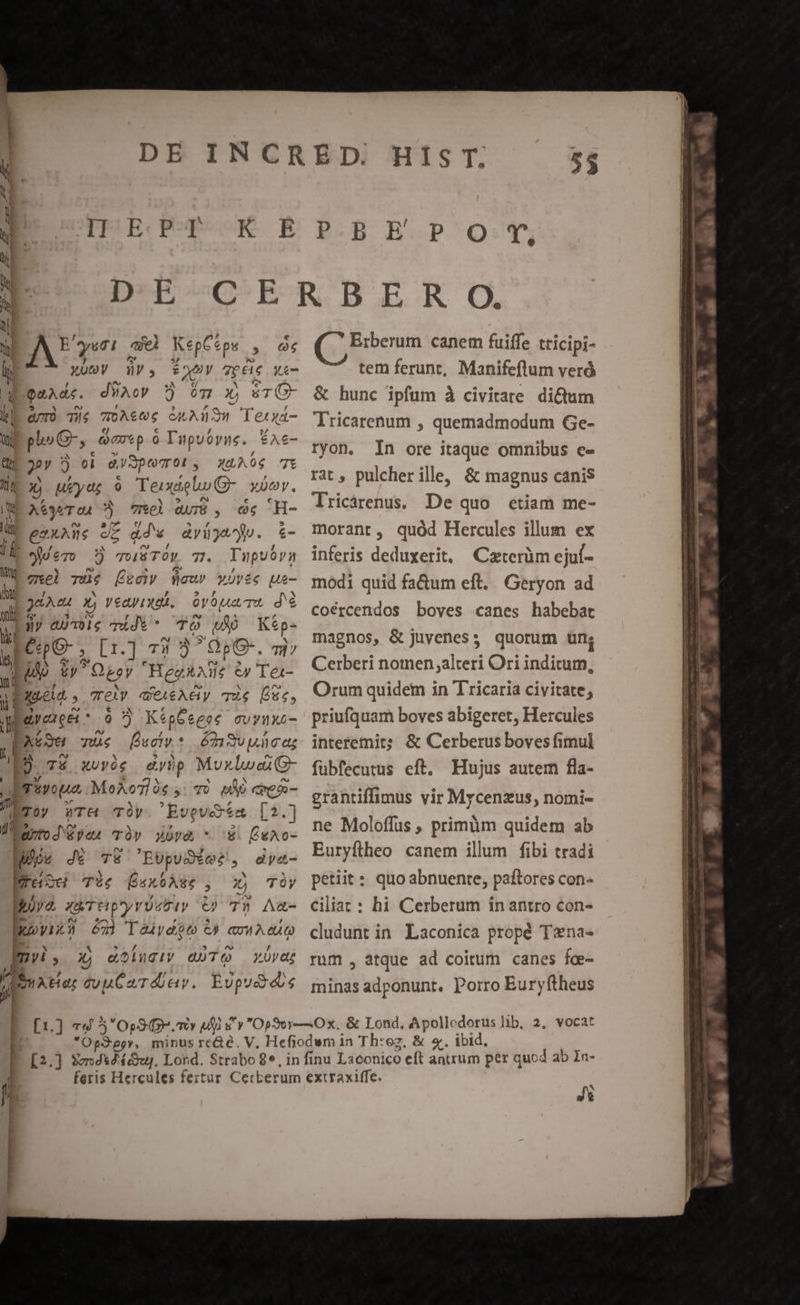 DE INCRED. HIST. 55
ΠΕΡΙ ΚΕΡΒΕΡΟΥ.
DE CERBERO.
ΛΕ'γουσι περὶ Κερβέρου, ὡς
κύων ἦν, ἔχων τρεῖς κε-
φαλάς. δῆλον ὅ ὅτι καὶ οὗτος
ἀπὸ τῆς πόλεως ἐκλήθη Τρικά-
ρηνος, ὥσπερ ὁ Γηρυόνης. ἔλε-
γον δὲ οἱ ἄνθρωποι, καλός τε
καὶ μέγας ὁ Τρικάρηνος κύων.
λέγεται δὲ περὶ αὐτοῦ, ὡς Ἡ-
ρακλῆς ἐξ ᾅδου ἀνήγαγεν. ἐ-
γένετο δὲ τοιοῦτόν τι. Γηρυόνῃ
περὶ τὰς βουσὶν ἦσαν κύνες με-
γάλαι καὶ νεανικαί. ὀνόματα δὲ
ἦν αὐτοῖς τάδε· τῷ μὲν Κέρ-
βερος, [1.] τῇ δὲ Ὦρος. τὴν
μὲν οὖν Ὦρον Ἡρακλῆς ἐν Τρι-
καρείᾳ, πρὶν περιελεῖν τὰς βοῦς,
ἀναιρεῖ· ὁ δὲ Κέρβερος συνηκο-
λούθει ταῖς βουσίν· ἐπιθυμήσας
δὲ τοῦ κυνὸς ἀνὴρ Μυκηναῖος
τοὔνομα Μολοττὸς, τὸ μὲν πρῶ-
τον ᾔτει τὸν Εὐρυσθέα [2.]
ἀποδοῦναι τὸν κύνα· οὐ βουλο-
μένου δὲ τοῦ Εὐρυσθέως, ἀνα-
πείθει τοὺς βουκόλους, καὶ τὸν
κύνα κατειργνύουσιν ἐν τῇ Λα-
κωνικῇ ἐπὶ Ταινάρῳ ἐν σπηλαίῳ
τινὶ, καὶ ἀφίησιν αὐτῷ κύνας
θηλείας συμβατεύειν. Εὐρυσθεὺς
CErberum canem fuiſſe tricipi-
tem ferunt. Manifeſtum verò
& hunc ipſum à civitate dictum
Tricarenum, quemadmodum Ge-
ryon. In ore itaque omnibus e-
rat, pulcher ille, & magnus canis
Tricarenus. De quo etiam me-
morant, quòd Hercules illum ex
inferis deduxerit. Cæterùm ejuſ-
modi quid factum eſt. Geryon ad
coërcendos boves canes habebat
magnos, & juvenes; quorum uni
Cerberi nomen, alteri Ori inditum.
Orum quidem in Tricaria civitate,
priuſquam boves abigeret, Hercules
interemit; & Cerberus boves ſimul
ſubſecutus eſt. Hujus autem fla-
grantiſſimus vir Mycenæus, nomi-
ne Moloſſus, primùm quidem ab
Euryſtheo canem illum ſibi tradi
petiit: quo abnuente, paſtores con-
ciliat: hi Cerberum in antro con-
cludunt in Laconica propè Tæna-
rum, atque ad coitum canes fœ-
minas adponunt. Porro Euryſtheus
[1.] τῷ δὲ Ὄρθος. τὸν μὲν οὖν Ὄρθον—Ox. & Lond. Apollodorus lib. 2. vocat
Ὄρθρον, minus rectè. V. Heſiodum in Theog. & χ. ibid.
[2.] ὑποδίδοσθαι, Lond. Strabo 8°. in ſinu Laconico eſt antrum per quod ab In-
feris Hercules fertur Cerberum extraxiſſe.
δὲ